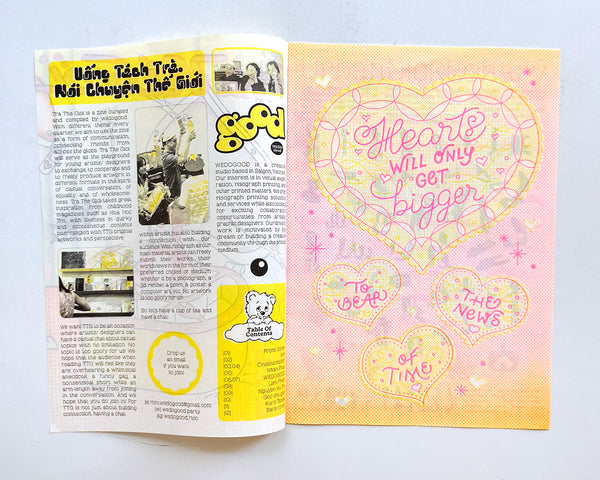 Uống Tách Trà,
Nói Chuyện Thế Giới
Trà Thế Giới is a zine curated
and compiled by wedogood.
With different theme every
quarter, we aim to use the zine
as a form of communication,
connecting friends from
across the globe. Trà Thế Giới
will serve as the playground
for young artists/ designers
to exchange, to cooperate and
to freely produce artwork in
different formats in the spirit
of casual conversation, of
equality, and of wholesome-
ness. Trà Thế Giới takes great
inspiration from childhood
magazines such as Hoa Học
Trò, with quickies in quirky
and spontaneous contents
intermingled with TTG original
artworks and perspective.
We want TTG to be an occasion
where artists/ designers can
have a casual chat about casual
topics with no limitation. No
topic is too goofy for us! We
hope that the audience when
reading TTG will feel like they
are overhearing a whimsical
anecdote, a funny gag, a
nonsensical short while an
arm-length away from joining
in the conversation. And we
hope that you do join in! For
TTG is not just about building
connection, having a chat
within artists, but also building
a connection with our
audience. With risograph as our
main material, artists can freely
submit their works, their
worldviews in the form of their
preferred choice of medium,
whether it be a photograph, a
3d render, a poem, a poster, a
computer art, etc. No artwork
is too goofy for us!
So let's have a cup of tea and
have a chat!
Drop us
an email
if you want
to join!
[e] riso.wedogood@gmail.com
[w] wedogood.party
[ig] wedogood.riso
good
WEDOGOOD is a creative
studio based in Saigon,
Our interest is in visual
ration, risograph printing
other printed matters. We
risograph printing
and services while also
for exciting
opportunities from
graphic designers. Our
work is motivated by
dream of building a
community through the
medium.
Table Of
Contents
[01]
[02]
[03,04]
[05]
[06,07]
[08]
[09]
[10]
[11]
[12]
Front Cover
Hearts
WILL ONLY
GET
bigger
TO
BEAR
THE
NEWS
of
TIME